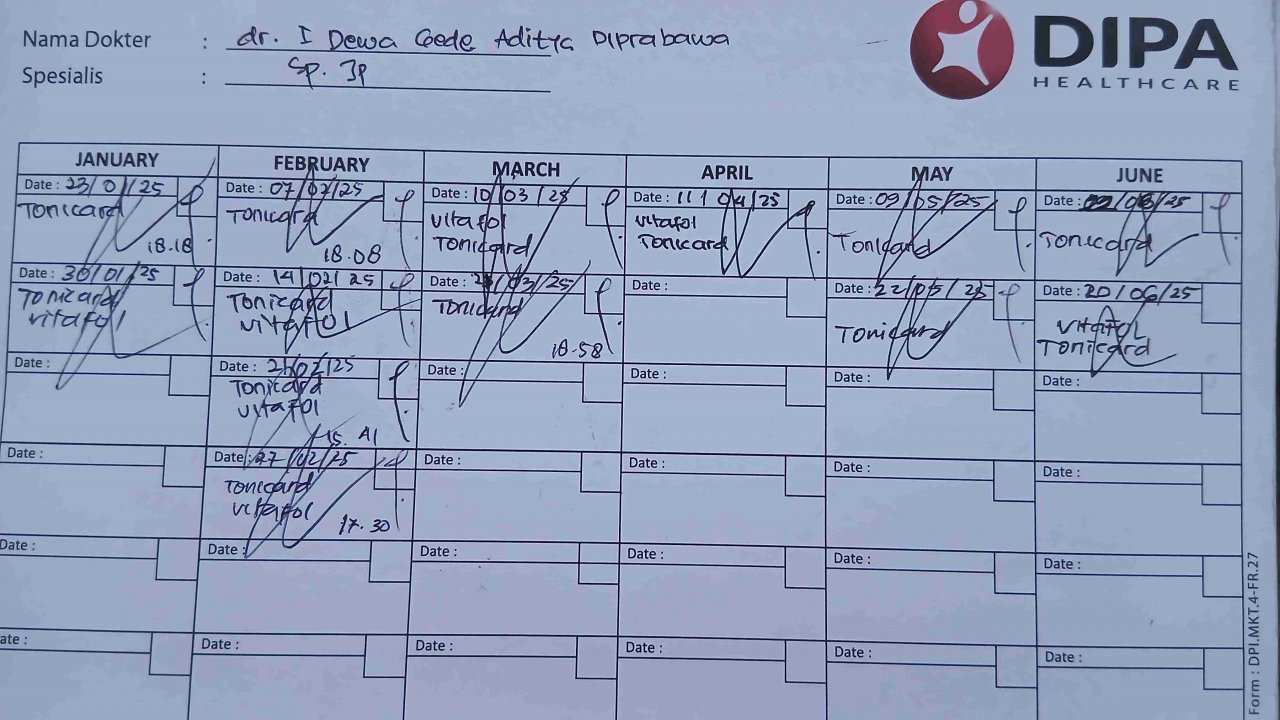 Nama Dokter : dr. I Dewa Gede Aditya Diprabawa
Spesialis : Sp. Jp
DIPA
HEALTHCARE
JANUARY FEBRUARY MARCH APRIL MAY JUNE
Date : 23/01/25
Tonicard
18.18
Date : 07/02/25
Tonicard
18.08
Date : 10/03/25
vitafol
Tonicard
Date : 11/04/25
vitafol
Tonicard
Date : 09/05/25
Tonicard
Date : /25
Tonicard
Date : 30/01/25
Tonicard
vitafol
Date : 14/02/25
Tonicard
vitafol
Date : /03/25
Tonicard
18.58
Date :
Date : 22/05/25
Tonicard
Date : 20/06/25
vitafol
Tonicard
Date :
Date : 21/02/25
Tonicard
vitafol
Date :
Date :
Date :
Date :
Date :
Date : 27/02/25
Tonicard
vitafol
17.30
Date :
Date :
Date :
Date :
Date :
Date :
Date :
Date :
Date :
Date :
ate :
Date :
Date :
Date :
Date :
Date :
Form : DPI.MKT.4-FR.27